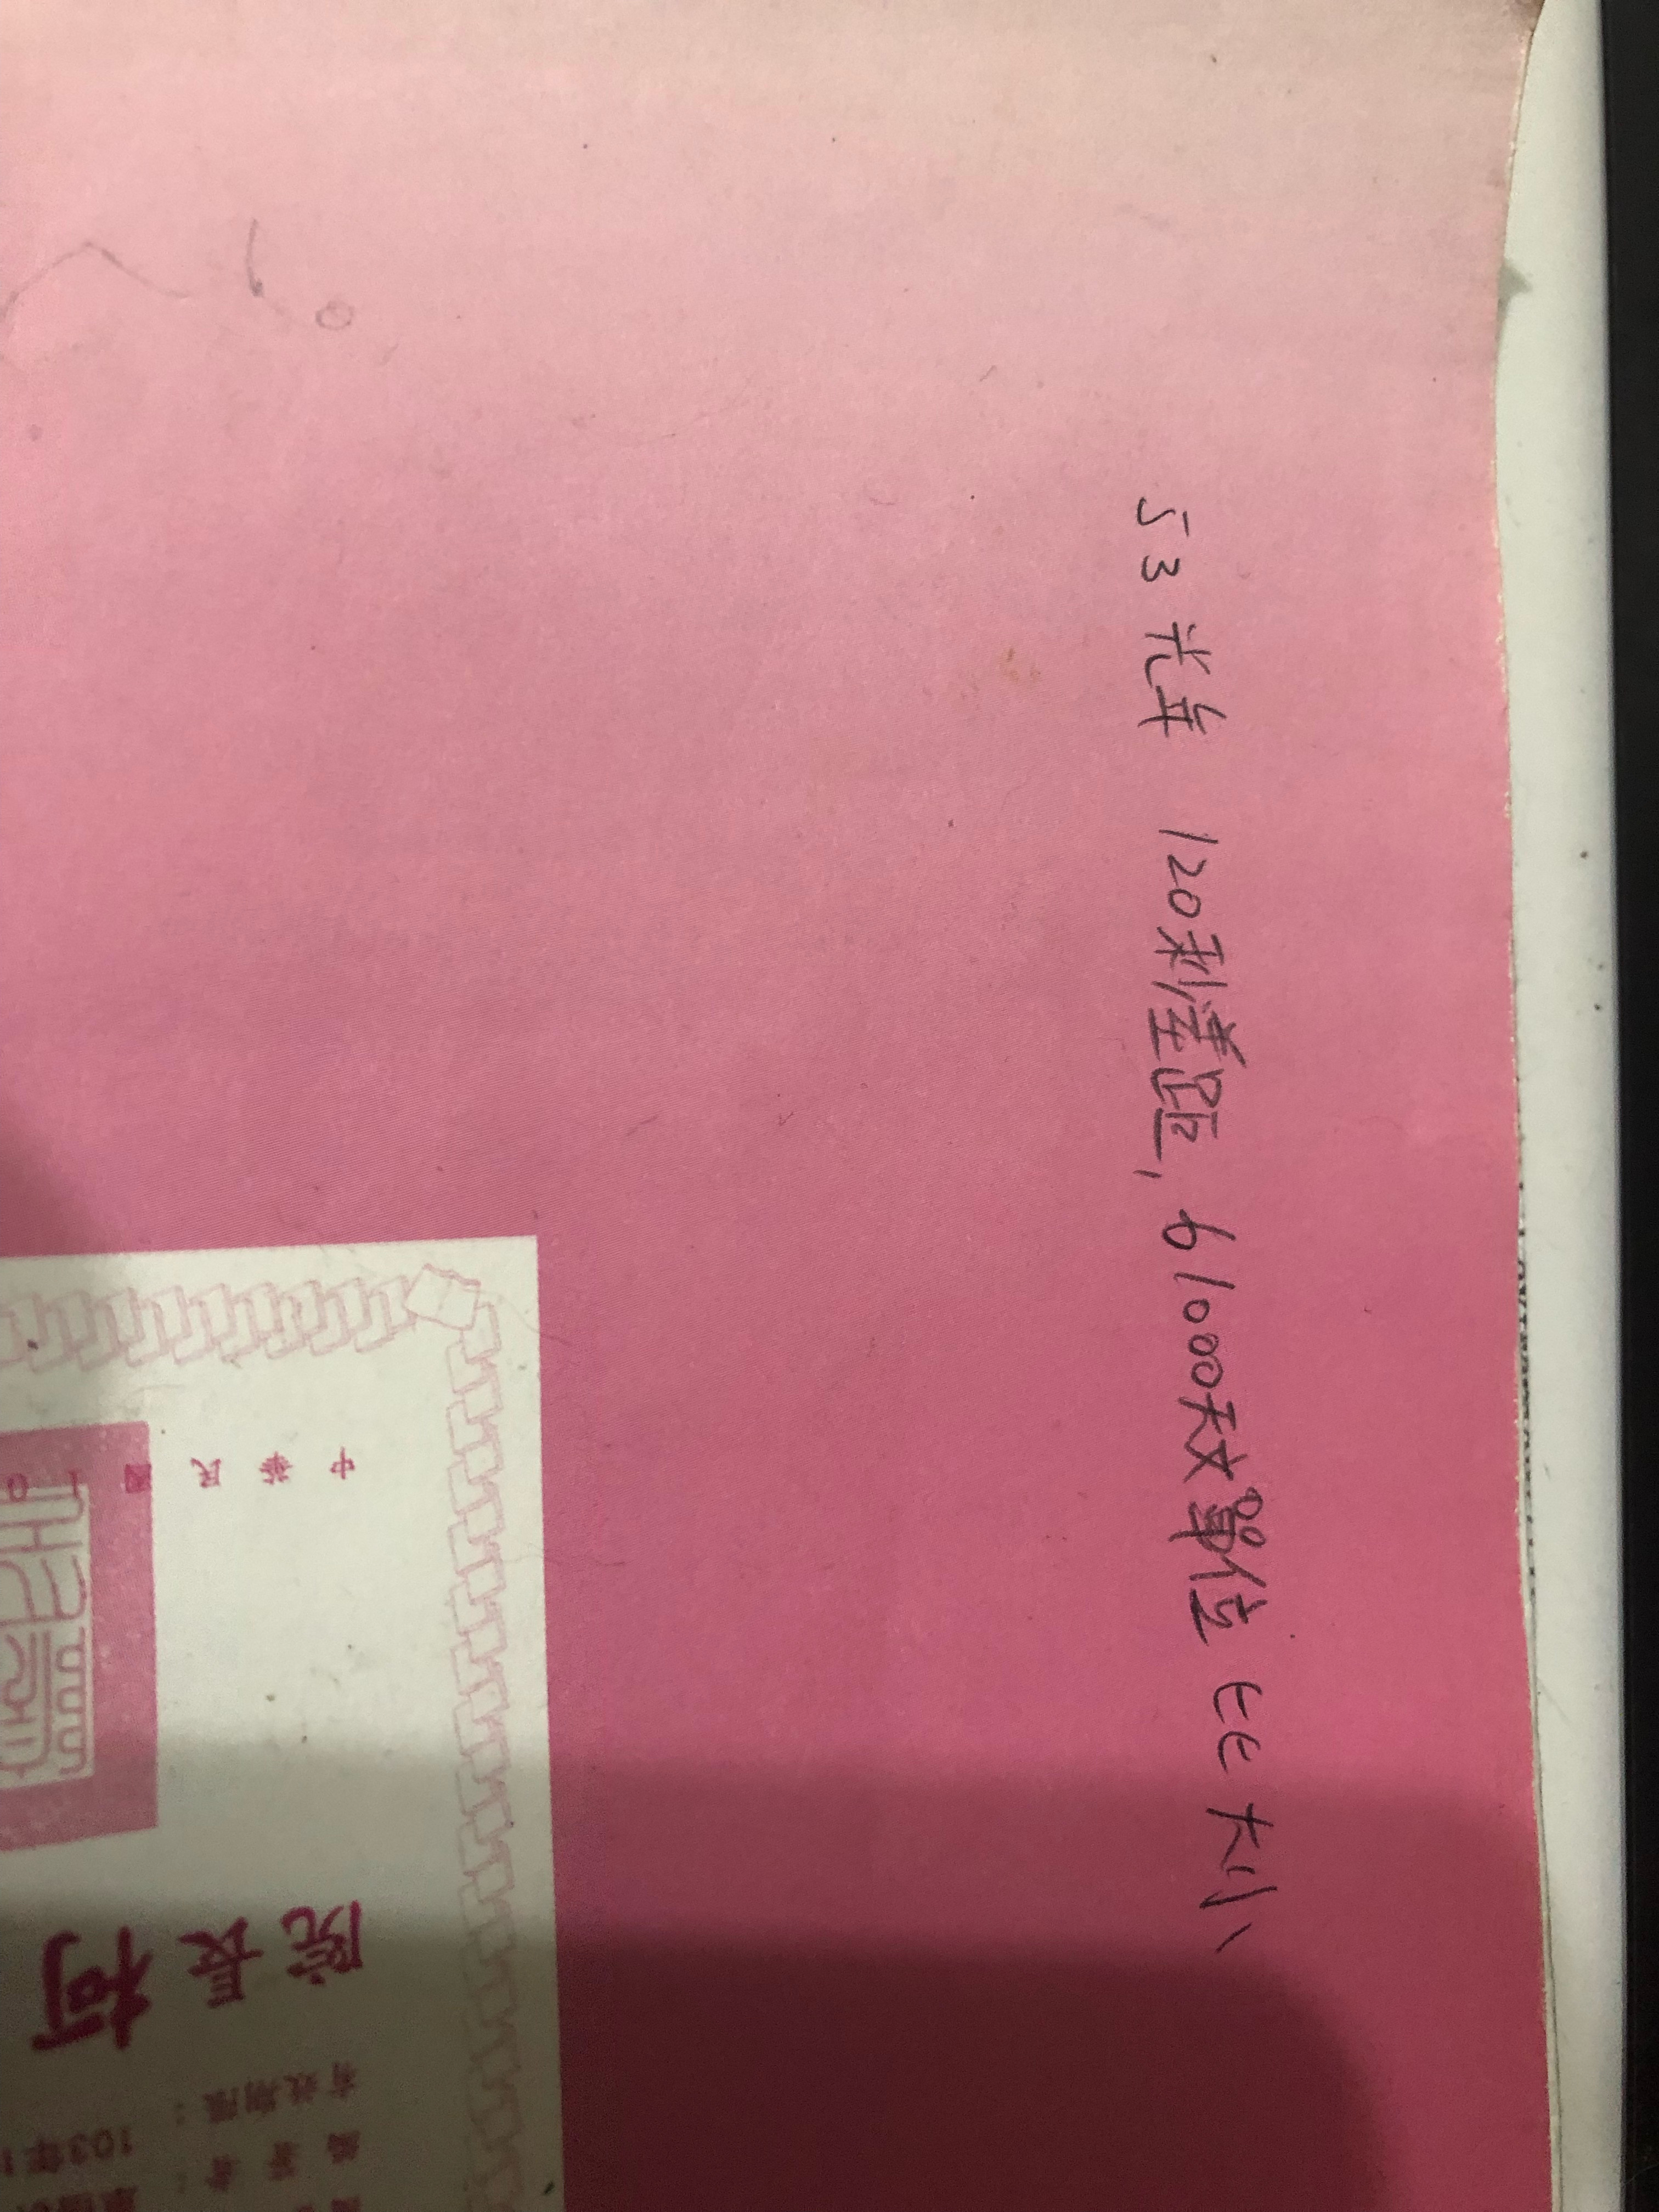 53光年 120秒差距, 61000天文單位 比大小
中華民國10
院長柯
有效期限：103年1
編著者：